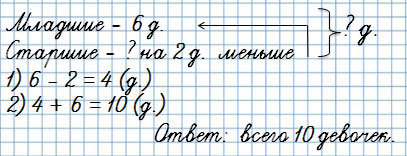 Младшие – 6 д.
Старшие – ? на 2 д. меньше
? д.
1) 6 – 2 = 4 (д.)
2) 4 + 6 = 10 (д.)
Ответ: всего 10 девочек.